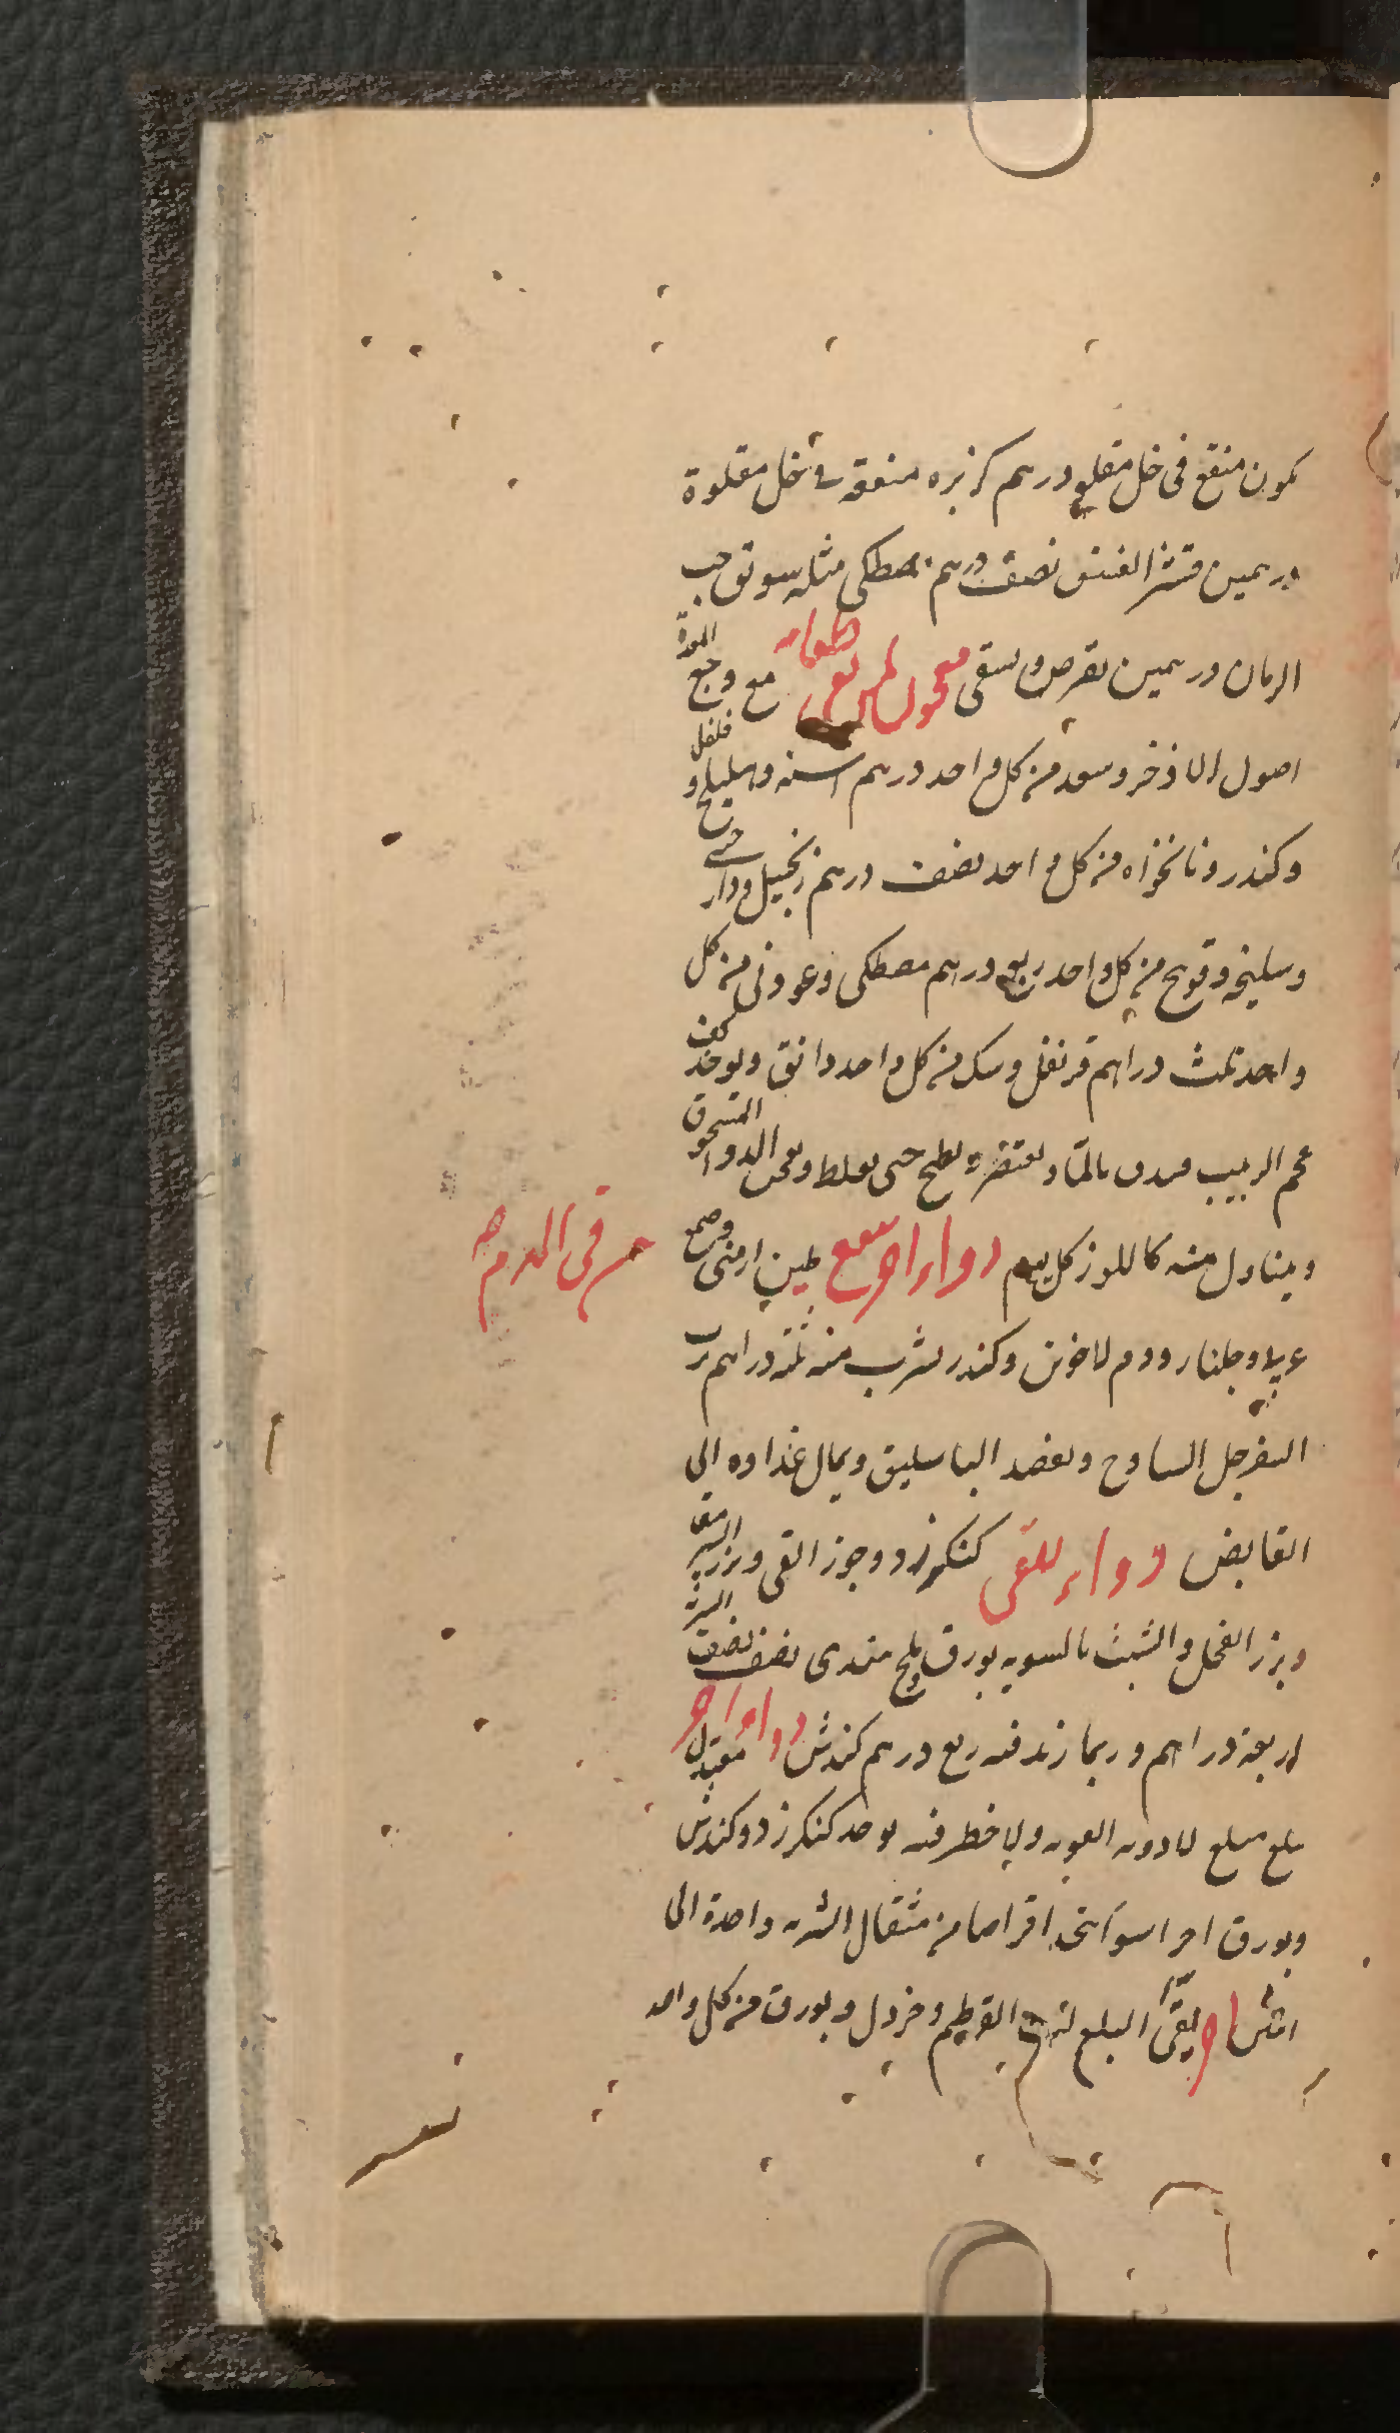 كمون منقع فى خل مقلى درهم كزبره منقعة فى خل مقلوة
درهمين قشر الفستق نصف درهم مصطكى مثله سويق حب
الرمان درهمين يقرص ويسقى معجون لمن يقى طعامه مع وجع المعدة
اصول الاذخر وسعد من كل واحد درهم اشنه وهليلج و فلفل
وكندر ونانخواه من كل واحد نصف درهم زنجبيل ودار
وسليخه وفوتنج من كل واحد ربع درهم مصطكى وعود نى من كل
واحد ثلث دراهم قرنفل وسك من كل واحد دانق ويوخذ كف
عجم الزبيب فيدق بالماء ويعتصر ويطبخ حتى يغلظ ويعجن الدواء المسحوق
ويتناول منه كاللوز كل يوم دواء اخر ينفع طين ارمنى وصمغ
من قى الدم
عربى وجلنار ودم لاخوين وكندر يشرب منه ثلثه دراهم برب
السفرجل الساذج ويفصد الباسليق ويمال غذاوه الى
القابض دواء للقى كنكرزد وجوز القى وبزر السرمق
وبزر الفجل والشبث بالسويه بورق ملح هندى نصف نصف الشربة
اربعة دراهم وربما زيد فيه ربع درهم كندش دواء اخر معتدل
يبلغ مبلغ لادويه القويه ولا خطر فيه يوخذ كنكرزد وكندش
وبورق اجزا سوآ يتخذ اقراصا من مثقال الشربه واحدة الى
اثنين اخر يقى البلغم لب القرطم وخردل وبورق من كل واحد